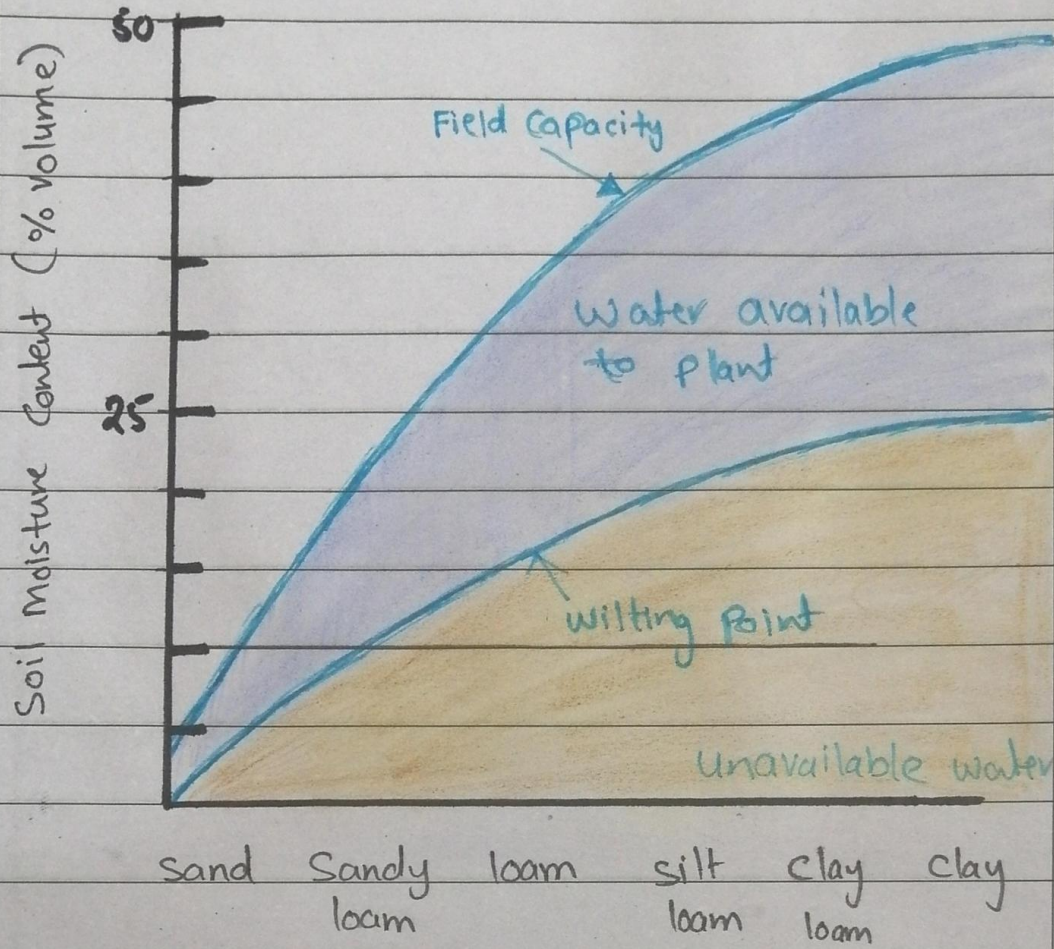 50
Soil Moisture Content (% volume)
Field Capacity
Water available
to plant
25
Wilting Point
Unavailable water
sand Sandy loam silt Clay Clay
loam loam loam